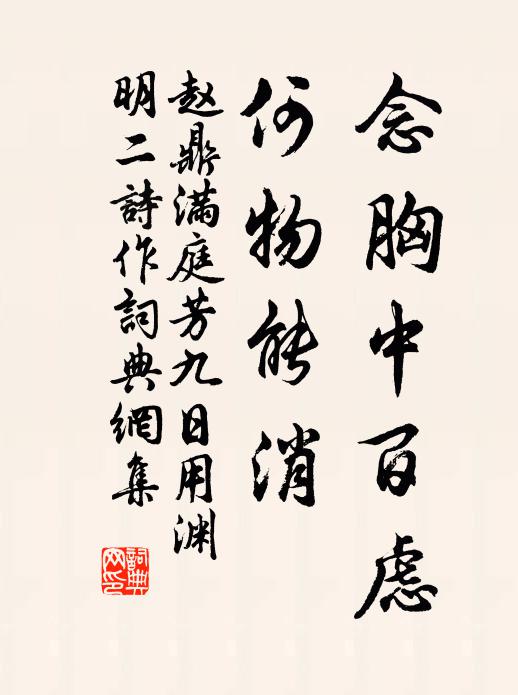 念胸中百慮
何物能消
赵鼎満庭芳九日用渊
明二詩作詞典網集
詞典
网印